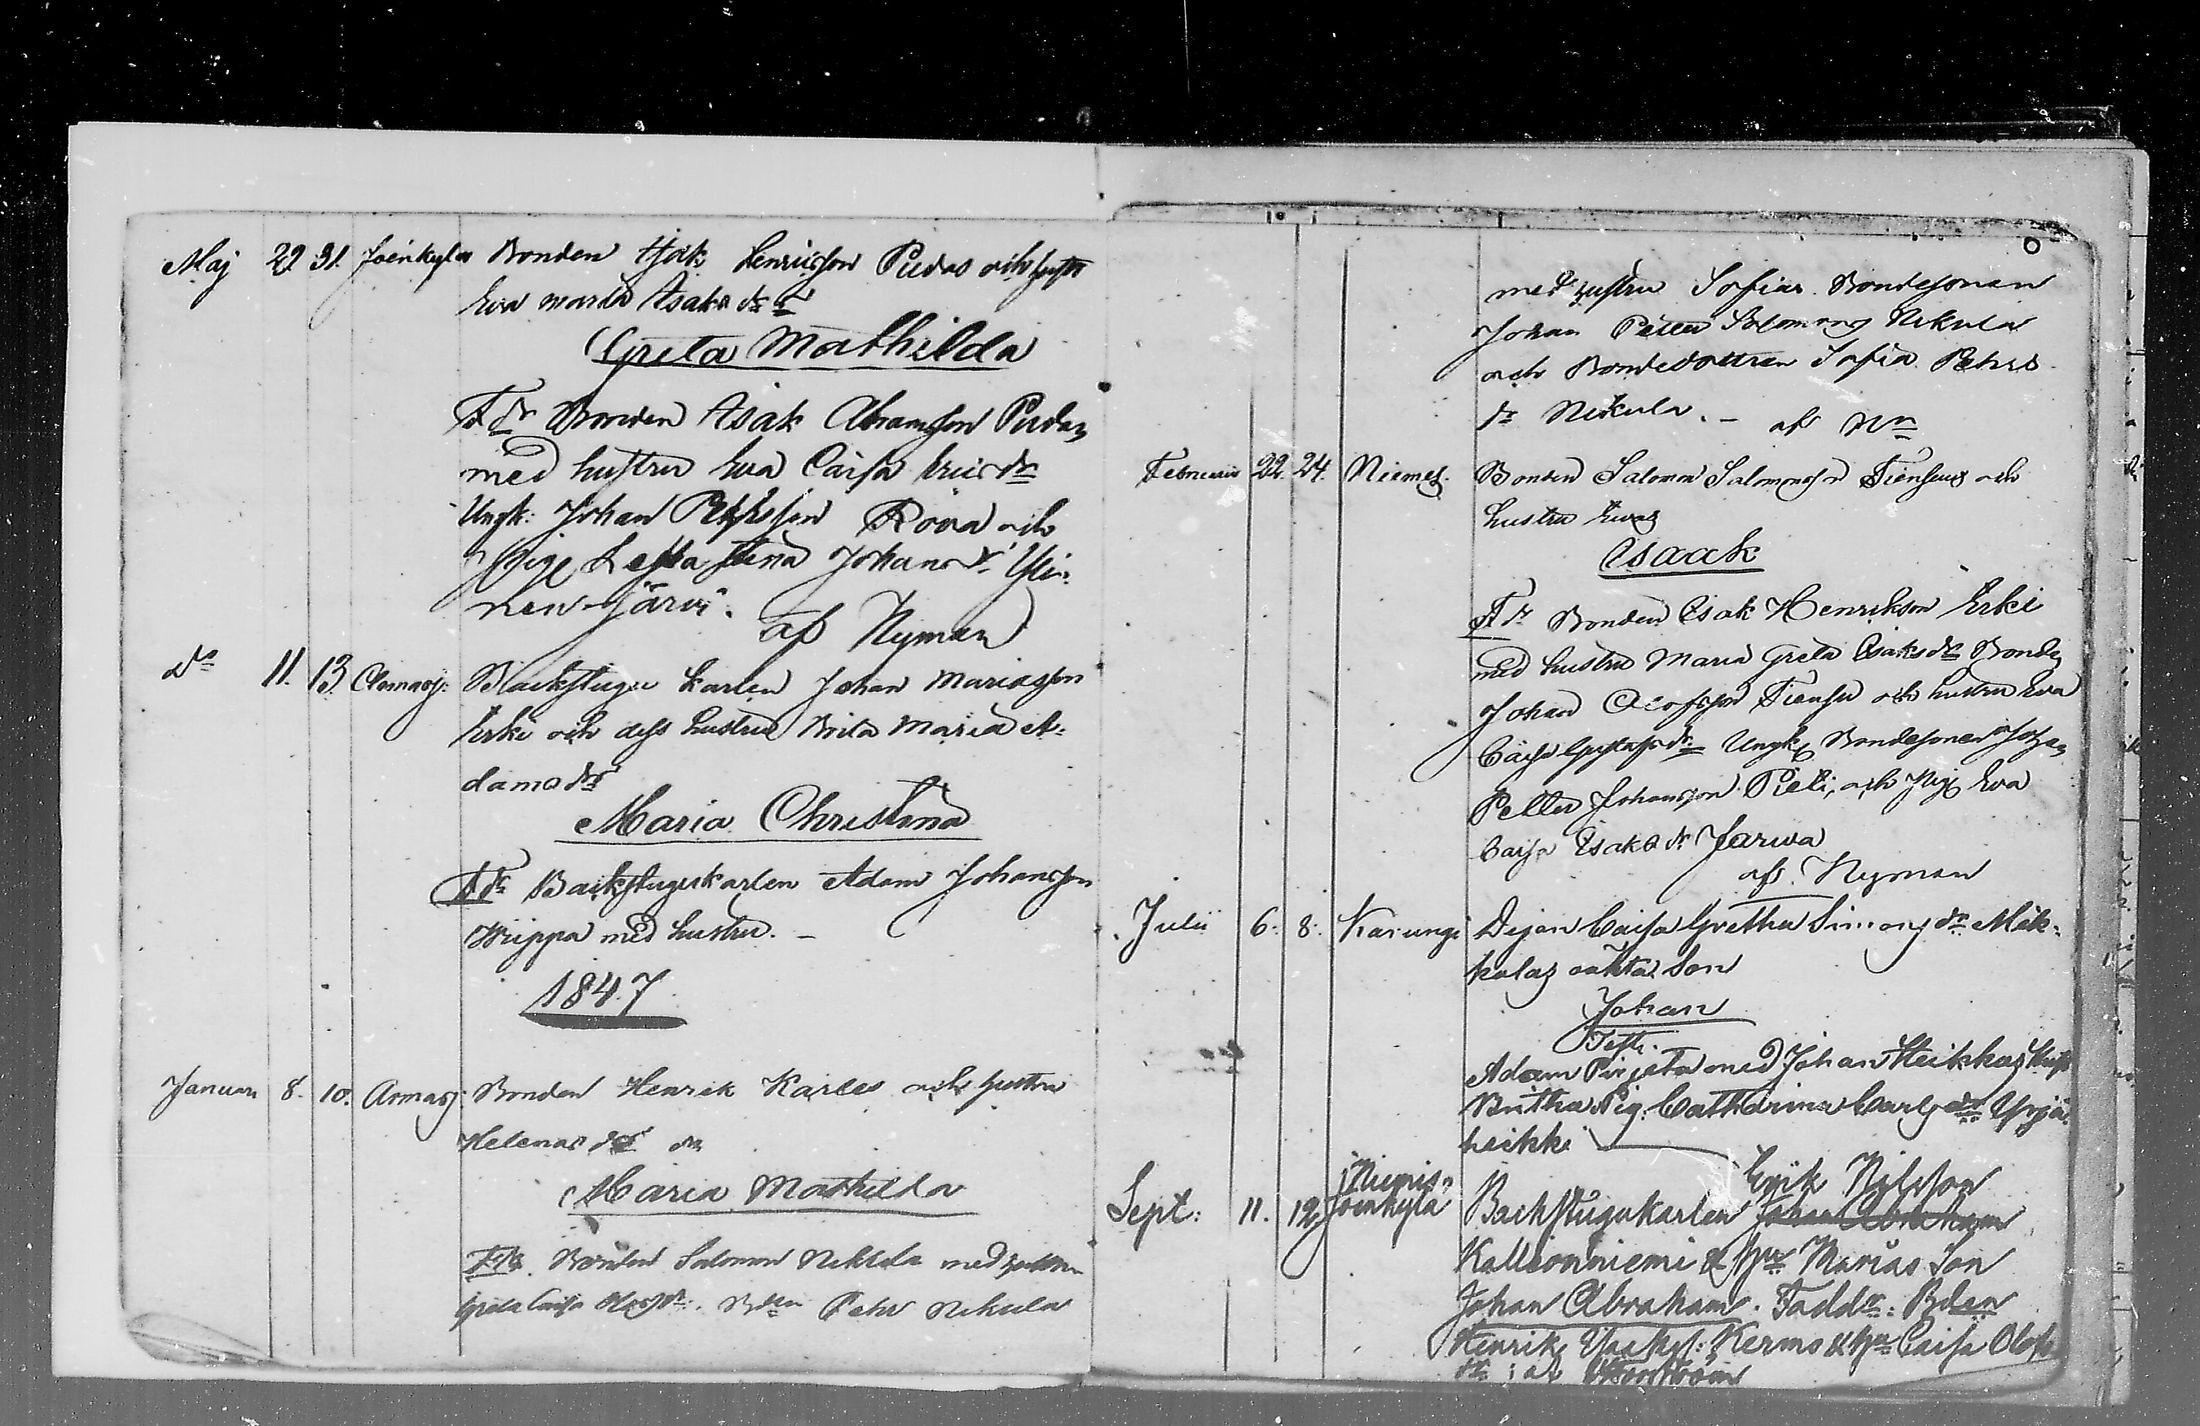 Maj 29 31. Joenkylä Bonden Isak Henricsson Pudas och hustr
Eva Maria Isaks dr
Greta Mathilda
Fdr Bonden Isak Abramsson Pudas
med hustru Eva Caisa Ericsdr
Ungk: Johan Rööa och
Pig Stina Johansdr Yli-
nen-Järvi.
af Nyman
do 11. 13. Armasj: Backstugu karlen Johan Mariasson
Erki och dess hustru Brita Maria A-
damsdr
Maria Christina
Fdr Backstugukarlen Adam Johansson
med hustru. –
1847
Januari 8. 10. Armasj Bonden Henrik Karles och hustru
Helenas dr
Maria Mathilda
Fdr. Bonden Salomon Nikula med hustru
Greta Caisa Olofsdr. Bden Pehr Nikula
med hustru Sofia. Bondesonen
Johan Petter Salomons Nikula
och Bondedottren Sofia Pehrs
dr Nikula. – af Nn
Februari 22. 24. Niemis. Bonden Salomon Salomonsson Tiensuu och
hustru Evas
Isaak
Fdr Bonden Isak Henrikson Erki
med hustru Maria Greta Isaksdr Bond
Johan Olofsson Tiensu och hustru Eva
Caisa Gustafsdr Ungk Bondesonen Joh
Petter Johansson Pieti, och Pig Eva
Caisa Isaks dr Jarwa
af Nyman
Julii 6. 8. Karungi Pigan Caisa Gretha Simons dr Mäk-
kolas oäkta Son
Johan
Test.
Adam Pirjeta med Johan Heikkas Hust
Britha Pig. Catharina Carlsdr Yrjä-
heikki
Erik Nilsson
Sept: 11. 12. Niemis-
Joenkylä Backstugukarlen Johan Abraham
Kallioniemi & Hu Marias Son
Johan Abraham. Faddr: Bden
Henrik Kerms & Hu Caisa Olofs
dr; af